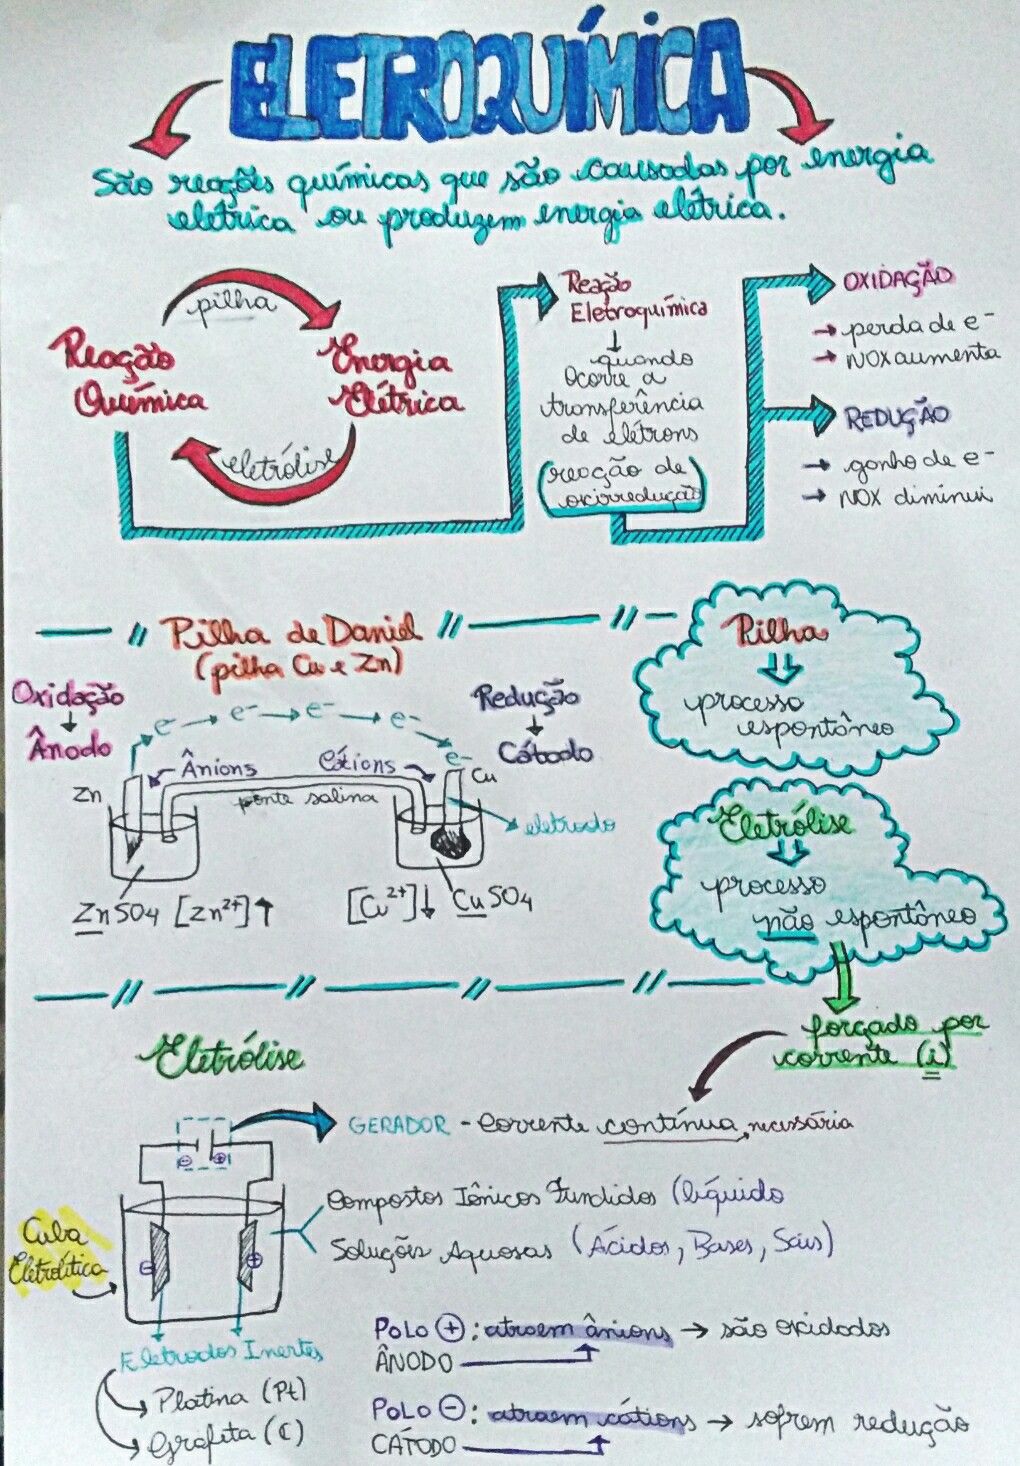 ELETROQUÍMICA
São reações químicas que são causadas por energia
elétrica ou produzem energia elétrica.
pilha
Reação
Química
Energia
Elétrica
eletrólise
Reação
Eletroquímica
quando
ocorre a
transferência
de elétrons
(reação de
oxirredução)
OXIDAÇÃO
→ perda de e-
→ NOX aumenta
REDUÇÃO
→ ganho de e-
→ NOX diminui
Pilha de Daniel
(pilha Cu e Zn)
Oxidação
Ânodo
e- → e- → e- → e-
e-
Redução
Cátodo
Ânions
Cátions
Zn
Cu
ponte salina
eletrodo
ZnSO4 [Zn2+]↑
[Cu2+]↓ CuSO4
Pilha
processo
espontâneo
Eletrólise
processo
não espontâneo
forçado por
corrente (i)
Eletrólise
GERADOR - Corrente contínua, necessária
⊖ ⊕
Compostos Iônicos Fundidos (líquido
Soluções Aquosas (Ácidos, Bases, Sais)
Cuba
Eletrolítica
⊖ ⊕
Eletrodos Inertes
→ Platina (Pt)
→ Grafita (C)
POLO ⊕: atraem ânions → são oxidados
ÂNODO
POLO ⊖: atraem cátions → sofrem redução
CÁTODO